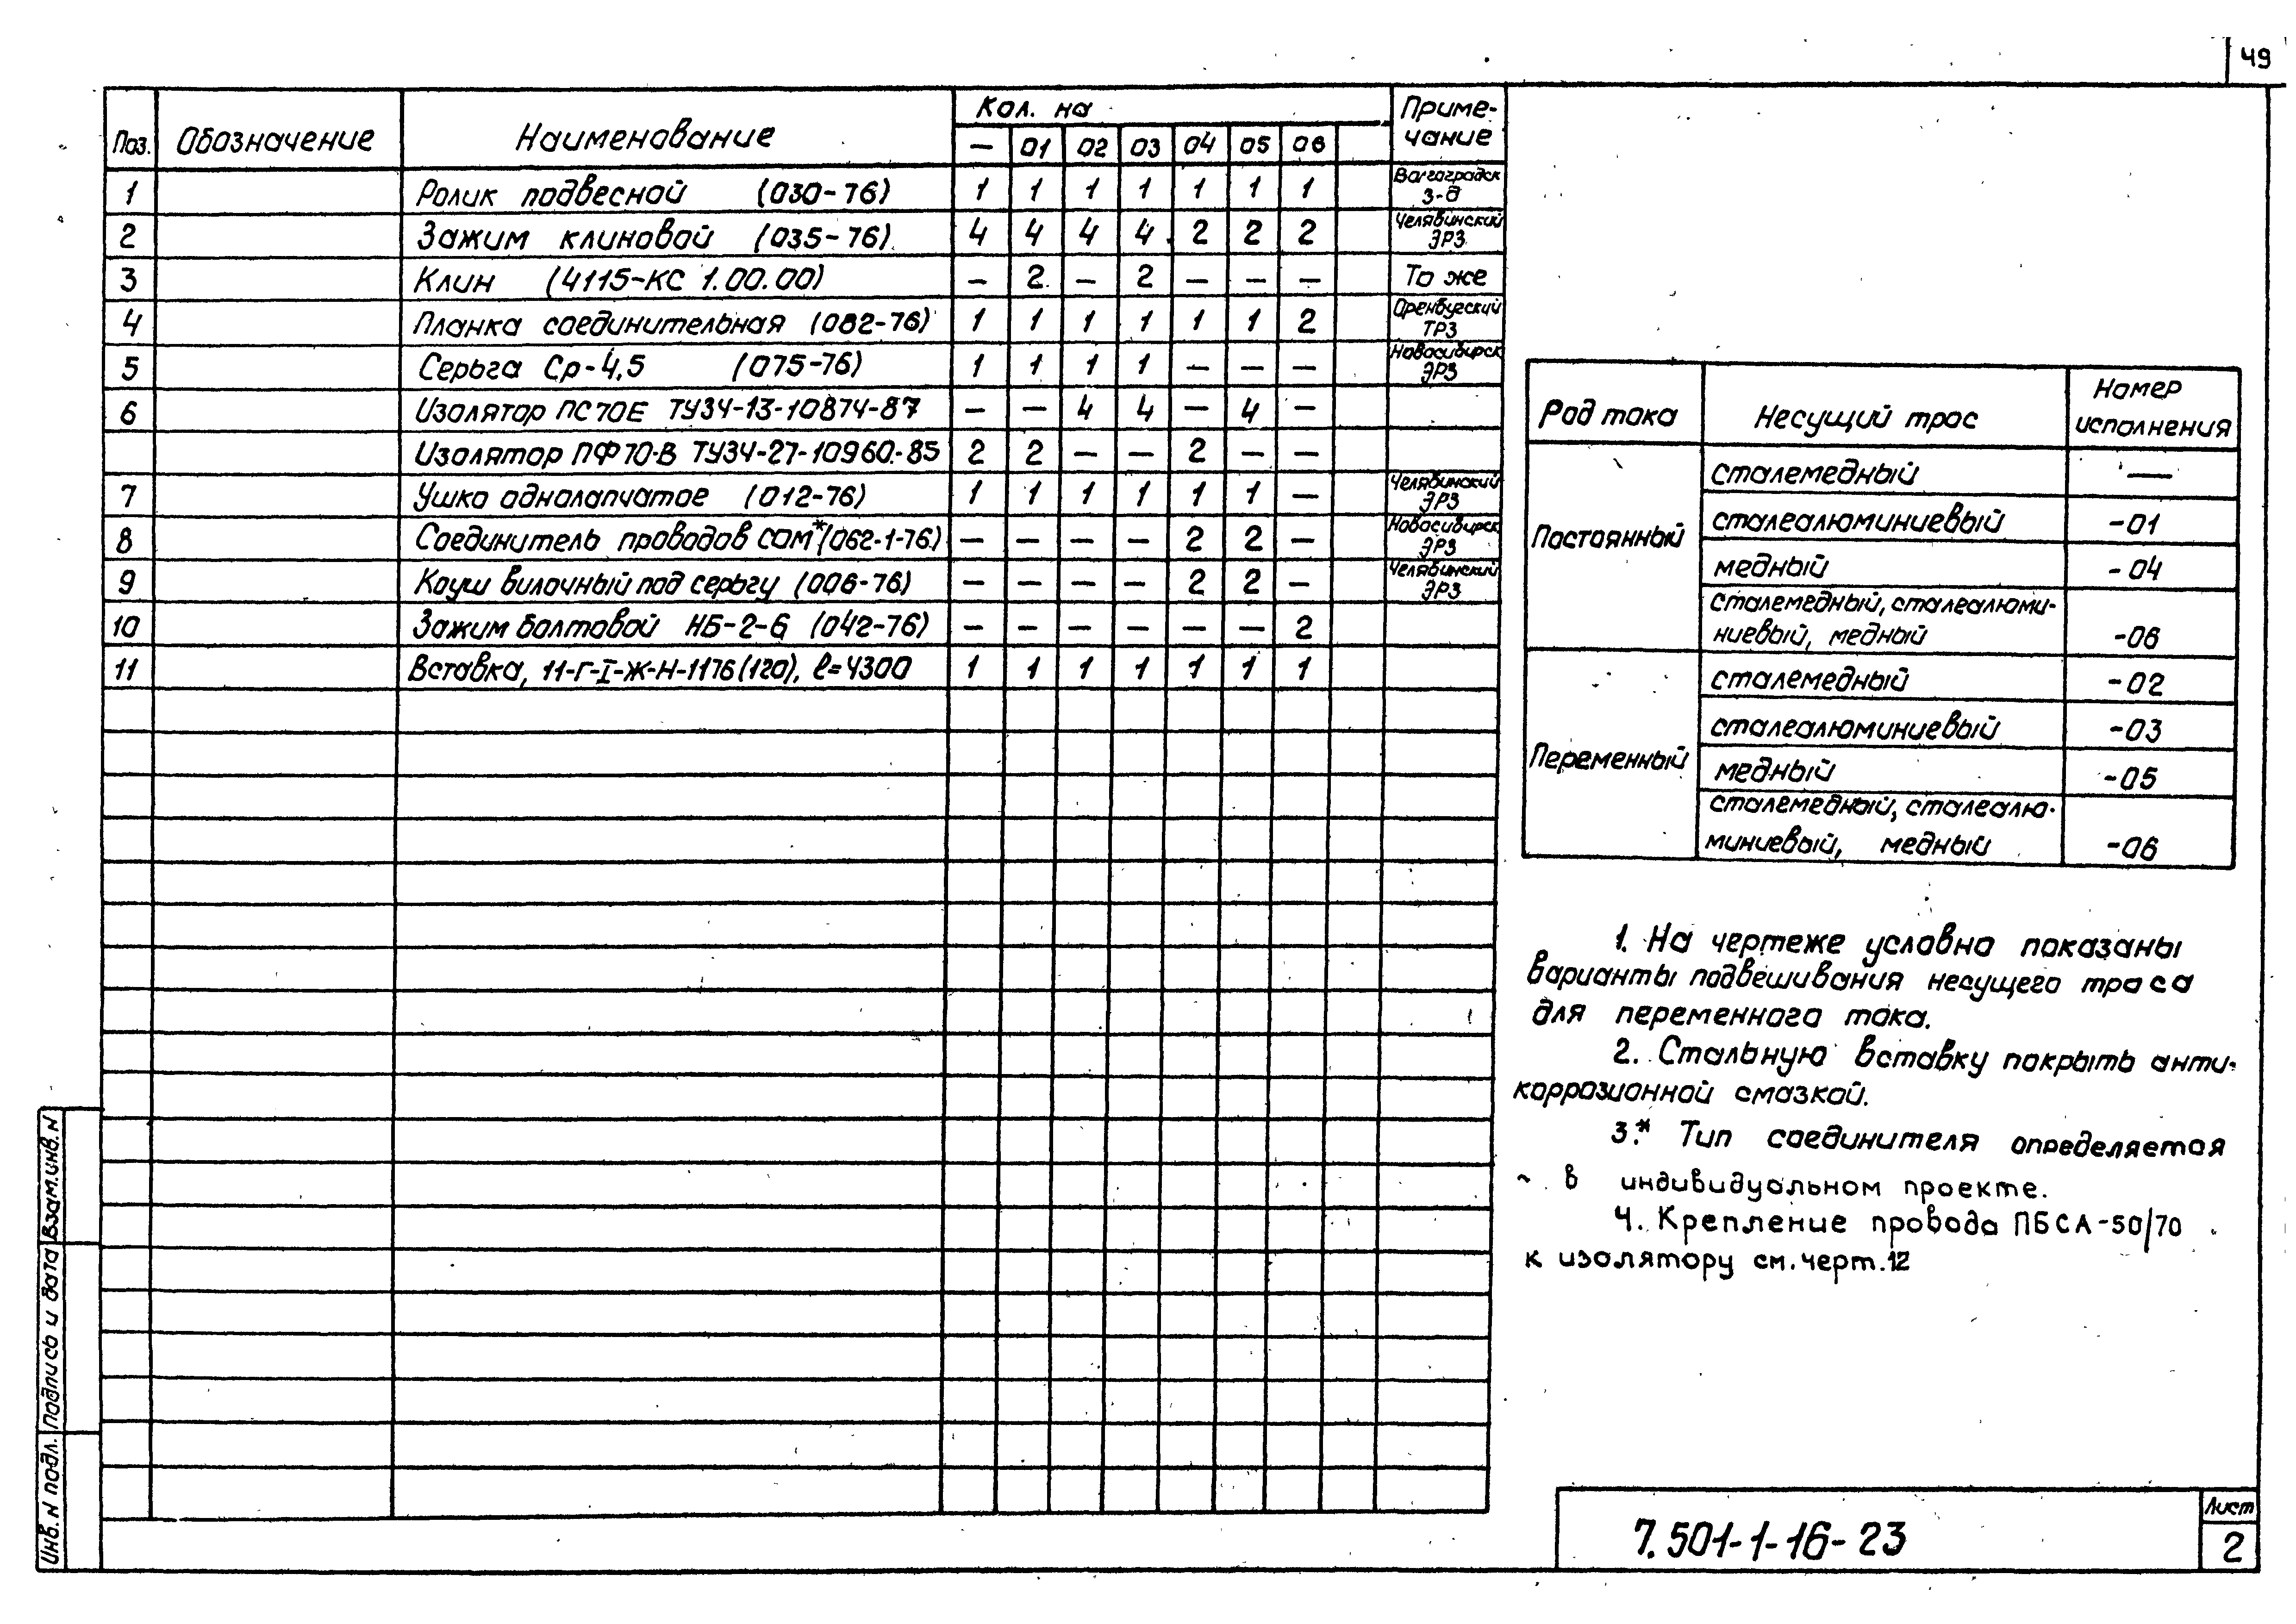 49
Поз. Обозначение Наименование Кол. на Приме-
чание
— 01 02 03 04 05 06
1 Ролик подвесной (030-76) 1 1 1 1 1 1 1 Волгоградск
З-д
2 Зажим клиновой (035-76) 4 4 4 4 2 2 2 Челябинский
ЭРЗ
3 Клин (4115-КС 1.00.00) — 2 — 2 — — — То же
4 Планка соединительная (082-76) 1 1 1 1 1 1 2 Оренбургский
ТРЗ
5 Серьга Ср-4,5 (075-76) 1 1 1 1 — — — Новосибирск
ЭРЗ
6 Изолятор ПС70Е ТУ34-13-10874-87 — — 4 4 — 4 —
Изолятор ПФ70-В ТУ34-27-10960-85 2 2 — — 2 — —
7 Ушко однолапчатое (012-76) 1 1 1 1 1 1 — Челябинский
ЭРЗ
8 Соединитель проводов СОМ* (062-1-76) — — — — 2 2 — Новосибирск
ЭРЗ
9 Коуш вилочный под серьгу (006-76) — — — — 2 2 — Челябинский
ЭРЗ
10 Зажим болтовой НБ-2-6 (042-76) — — — — — — 2
11 Вставка, 11-Г-I-Ж-Н-1176(120), ℓ=4300 1 1 1 1 1 1 1
Род тока Несущий трос Номер
исполнения
Постоянный
сталемедный —
сталеалюминиевый -01
медный -04
сталемедный, сталеалюми-
ниевый, медный -06
Переменный
сталемедный -02
сталеалюминиевый -03
медный -05
сталемедный, сталеалю-
миниевый, медный -06
1. На чертеже условно показаны
варианты подвешивания несущего троса
для переменного тока.
2. Стальную вставку покрыть анти-
коррозионной смазкой.
3.* Тип соединителя определяется
в индивидуальном проекте.
4. Крепление провода ПБСА-50/70
к изолятору см. черт. 12
Инв. N подл. Подпись и дата Взам.инв. N
7.501-1-16-23
Лист
2